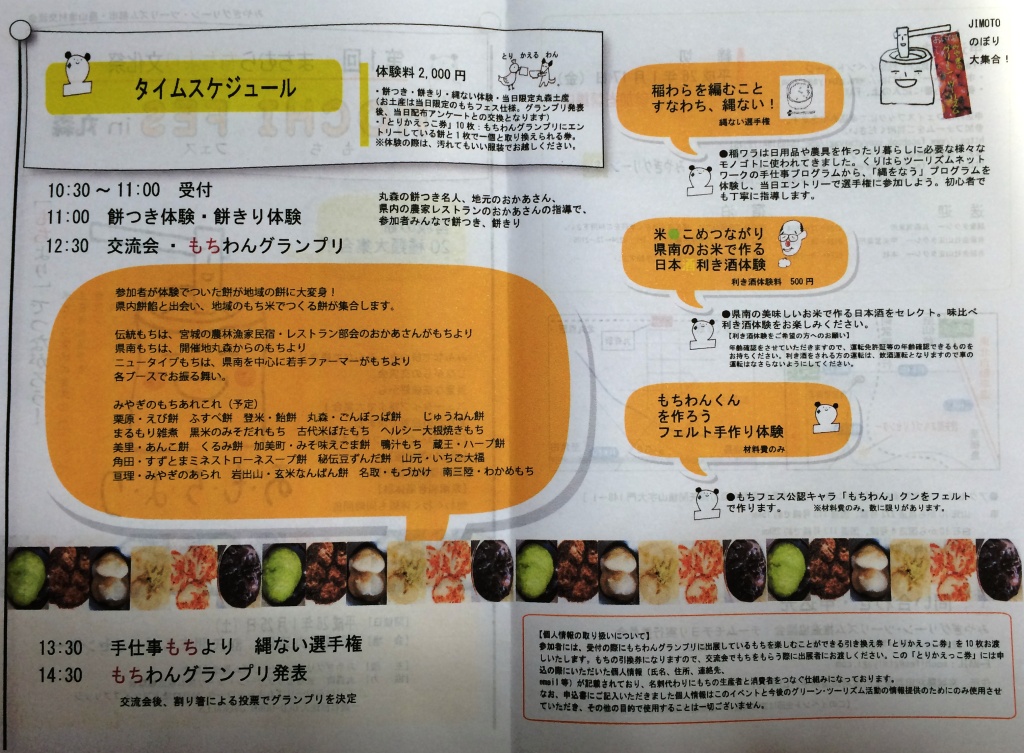 タイムスケジュール
体験料 2,000 円
とり かえる わん
・餅つき・餅きり・縄ない体験・当日限定丸森土産
（お土産は当日限定のもちフェス仕様。グランプリ発表
後、当日配布アンケートとの交換となります）
・「とりかえっこ券」10 枚：もちわんグランプリにエン
トリーしている餅と 1 枚で一個と取り換えられる券。
※体験の際は、汚れてもいい服装でお越しください。
10:30 ～ 11:00　受付
11:00　餅つき体験・餅きり体験
12:30　交流会 ・ もちわんグランプリ
丸森の餅つき名人、地元のおかあさん、
県内の農家レストランのおかあさんの指導で、
参加者みんなで餅つき、餅きり
参加者が体験でついた餅が地域の餅に大変身！
県内餅餡と出会い、地域のもち米でつくる餅が集合します。
伝統もちは、宮城の農林漁家民宿・レストラン部会のおかあさんがもちより
県南もちは、開催地丸森からのもちより
ニュータイプもちは、県南を中心に若手ファーマーがもちより
各ブースでお振る舞い。
みやぎのもちあれこれ（予定）
栗原・えび餅　ふすべ餅　登米・飴餅　丸森・ごんぼっぱ餅　　じゅうねん餅
まるもり雑煮　黒米のみぞだれもち　古代米ぼたもち　ヘルシー大根焼きもち
美里・あんこ餅　くるみ餅　加美町・みそ味えごま餅　鴨汁もち　蔵王・ハーブ餅
角田・すずとまミネストローネスープ餅　秘伝豆ずんだ餅　山元・いちご大福
亘理・みやぎのあられ　岩出山・玄米なんばん餅　名取・もづかけ　南三陸・わかめもち
13:30　手仕事もちより　縄ない選手権
14:30　もちわんグランプリ発表
交流会後、割り箸による投票でグランプリを決定
JIMOTO
のぼり
大集合！
稲わらを編むこと
すなわち、縄ない！
縄ない選手権
●稲ワラは日用品や農具を作ったり暮らしに必要な様々な
モノゴトに使われてきました。くりはらツーリズムネット
ワークの手仕事プログラムから、「縄をなう」プログラムを
体験し、当日エントリーで選手権に参加しよう。初心者で
も丁寧に指導します。
米こめつながり
県南のお米で作る
日本 利き酒体験
利き酒体験料　500 円
●県南の美味しいお米で作る日本酒をセレクト。味比べ
利き酒体験をお楽しみください。
【利き酒体験をご希望の方へのお願い】
年齢確認をさせていただきますので、運転免許証等の年齢確認できるものを
お持ちください。利き酒をされる方の運転は、飲酒運転となりますので車の
運転はなさらないようにしてください。
もちわんくん
を作ろう
フェルト手作り体験
材料費のみ
●もちフェス公認キャラ「もちわん」クンをフェルト
で作ります。　※材料費のみ。数に限りがあります。
【個人情報の取り扱いについて】
参加者には、受付の際にもちわんグランプリに出展しているもちを楽しむことができる引き換え券「とりかえっこ券」を 10 枚お渡
しいたします。もちの引換券になりますので、交流会でもちをもらう際に出展者にお渡しください。この「とりかえっこ券」には申
込の際にいただいた個人情報（氏名、住所、連絡先、
email 等）が記載されており、名刺代わりにもちの生産者と消費者をつなぐ仕組みになっております。
なお、申込書にご記入いただきました個人情報はこのイベントと今後のグリーン・ツーリズム活動の情報提供のためにのみ使用させ
ていただき、その他の目的で使用することは一切ございません。